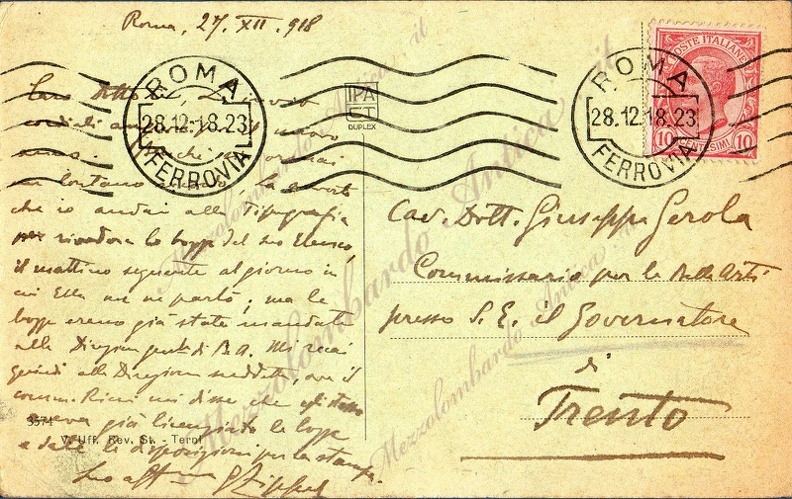 Roma, 27. XII. 918
Caro Dottore, Le invio
cordiali auguri nuovo
anno.
lontano La avverto
che io andai alla Tipografia
per rivedere le bozze del suo Elenco,
il mattino seguente al giorno in
cui Ella me ne parlò; ma le
bozze erano già state mandate
alla Direzion gen. di B.A. Mi recai
quindi alla Direzione suddetta, ove il
comm. Ricci mi disse che egli stesso
aveva già licenziato le bozze
e date le disposizioni per la stampa.
Suo aff.
3574 V. Uff. Rev. St. - Terni
ROMA
28.12.18.23
FERROVIA
IPA
CT
DUPLEX
ROMA
28.12.18.23
FERROVIA
POSTE ITALIANE
10 CENTESIMI 10
Cav. Dott. Giuseppe Gerola
Commissario per le Belle Arti
presso S. E. il Governatore
di
Trento
Mezzolombardo Antica .it
Mezzolombardo Antica .it
Mezzolombardo Antica .it